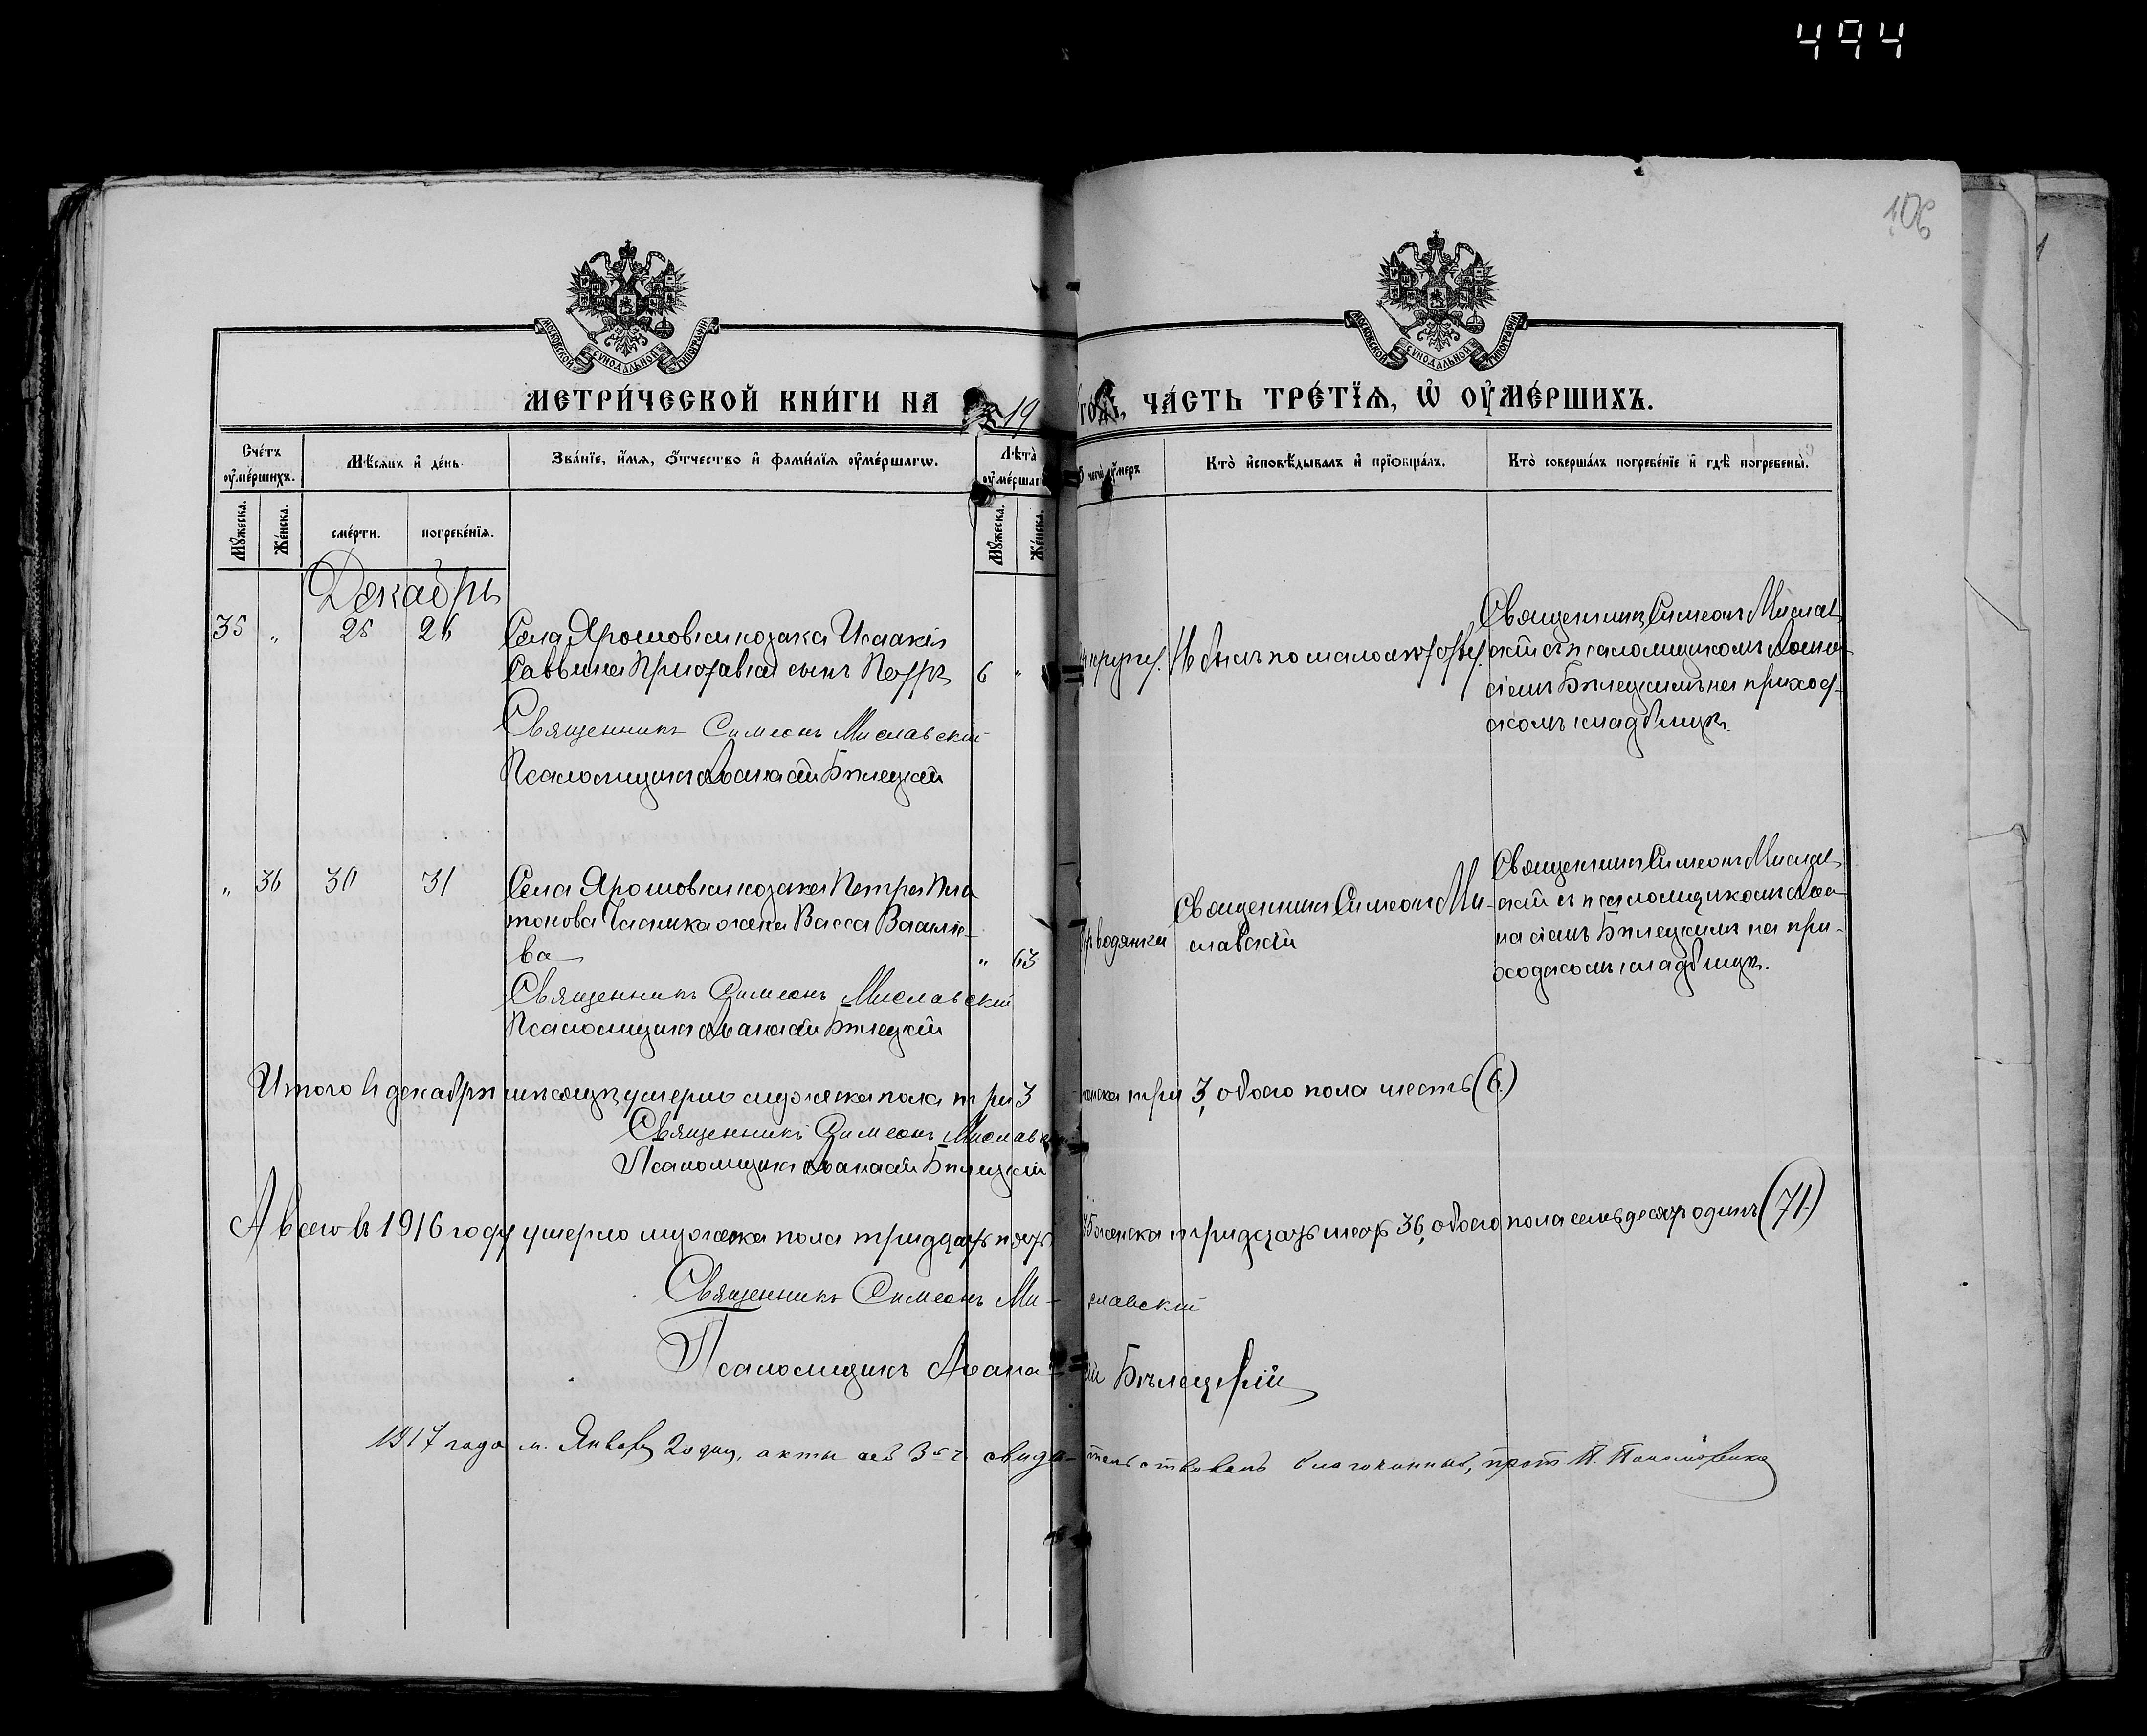 494
106
МОСКОВСКОЙ СУНОДАЛЬНОЙ ТИПОГРАФІИ
МОСКОВСКОЙ СУНОДАЛЬНОЙ ТИПОГРАФІИ
МЕТРИ́ЧЕСКОЙ КНИ́ГИ НА 19 ГОДЪ, ЧА́СТЬ ТРЕ́ТЇѦ, Ѡ ОУ҆МЕ́РШИХЪ.
Сче́тъ оу҆ме́ршихъ.
Мѣ́сѧцъ и҆ де́нь.
Зва́нїе, и҆́мѧ, ѻ҆́тчество и҆ фами́лїѧ оу҆ме́ршагѡ.
Лѣ́та оу҆ме́ршагѡ
чегѡ̀ оу҆́меръ
Кто̀ и҆сповѣ́дывалъ и҆ прїѡбща́лъ.
Кто̀ соверша́лъ погребе́нїе и҆ гдѣ̀ погребены̀.
Мꙋ́жеска.
Же́нска.
сме́рти.
погребе́нїѧ.
Мꙋ́жеска.
Же́нска.
Декабрь
35 „ 25 26 Села Ярошовки козака Исаакія
Саввина сынъ Петръ 6 „
Священникъ Симеонъ Миславскій
Псаломщикъ Аѳанасій Бѣлецкій
крупа.
Не былъ по малолѣтству.
Священникъ Симеонъ Мислав-
скій съ псаломщикомъ Аѳана-
сіемъ Бѣлецкимъ на приход-
скомъ кладбищѣ.
„ 36 30 31 Села Ярошовки козака Петра Пла-
тонова Часника жена Васса Василіе-
ва „ 63
Священникъ Симеонъ Миславскій
Псаломщикъ Аѳанасій Бѣлецкій
водянки
Священникъ Симеонъ Ми-
славскій
Священникъ Симеонъ Мислав-
скій съ псаломщикомъ Аѳа-
насіемъ Бѣлецкимъ на при-
ходскомъ кладбищѣ.
Итого въ декабрѣ мѣсяцѣ умерло мужеска пола три 3 женска три 3, обоего пола шесть (6.)
Священникъ Симеонъ Миславскій
Псаломщикъ Аѳанасій Бѣлецкій
А всего въ 1916 году умерло мужеска пола тридцать пять 35 женска тридцать шесть 36, обоего пола семьдесятъ одинъ (71.)
Священникъ Симеонъ Ми-славскій
Псаломщикъ Аѳанасій Бѣлецкій
1917 года м. Января 20 дня, акты сей 3й ч. свидѣ-тельствовалъ благочинный, прот. П.